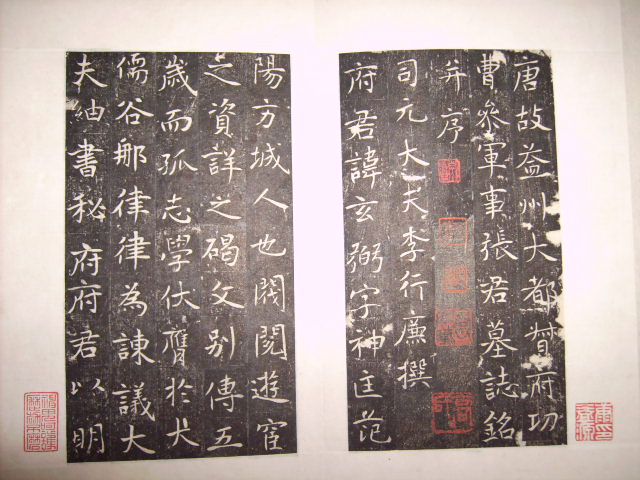 唐故益州大都督府功
曹參軍事張君墓誌銘
并序
司元大夫李行廉撰
府君諱玄弼字神匡范
陽方城人也閥閱遊宦
之資詳之碣文別傳五
歲而孤志學伏膺於大
儒谷那律律為諫議大
夫紬書秘府府君以明